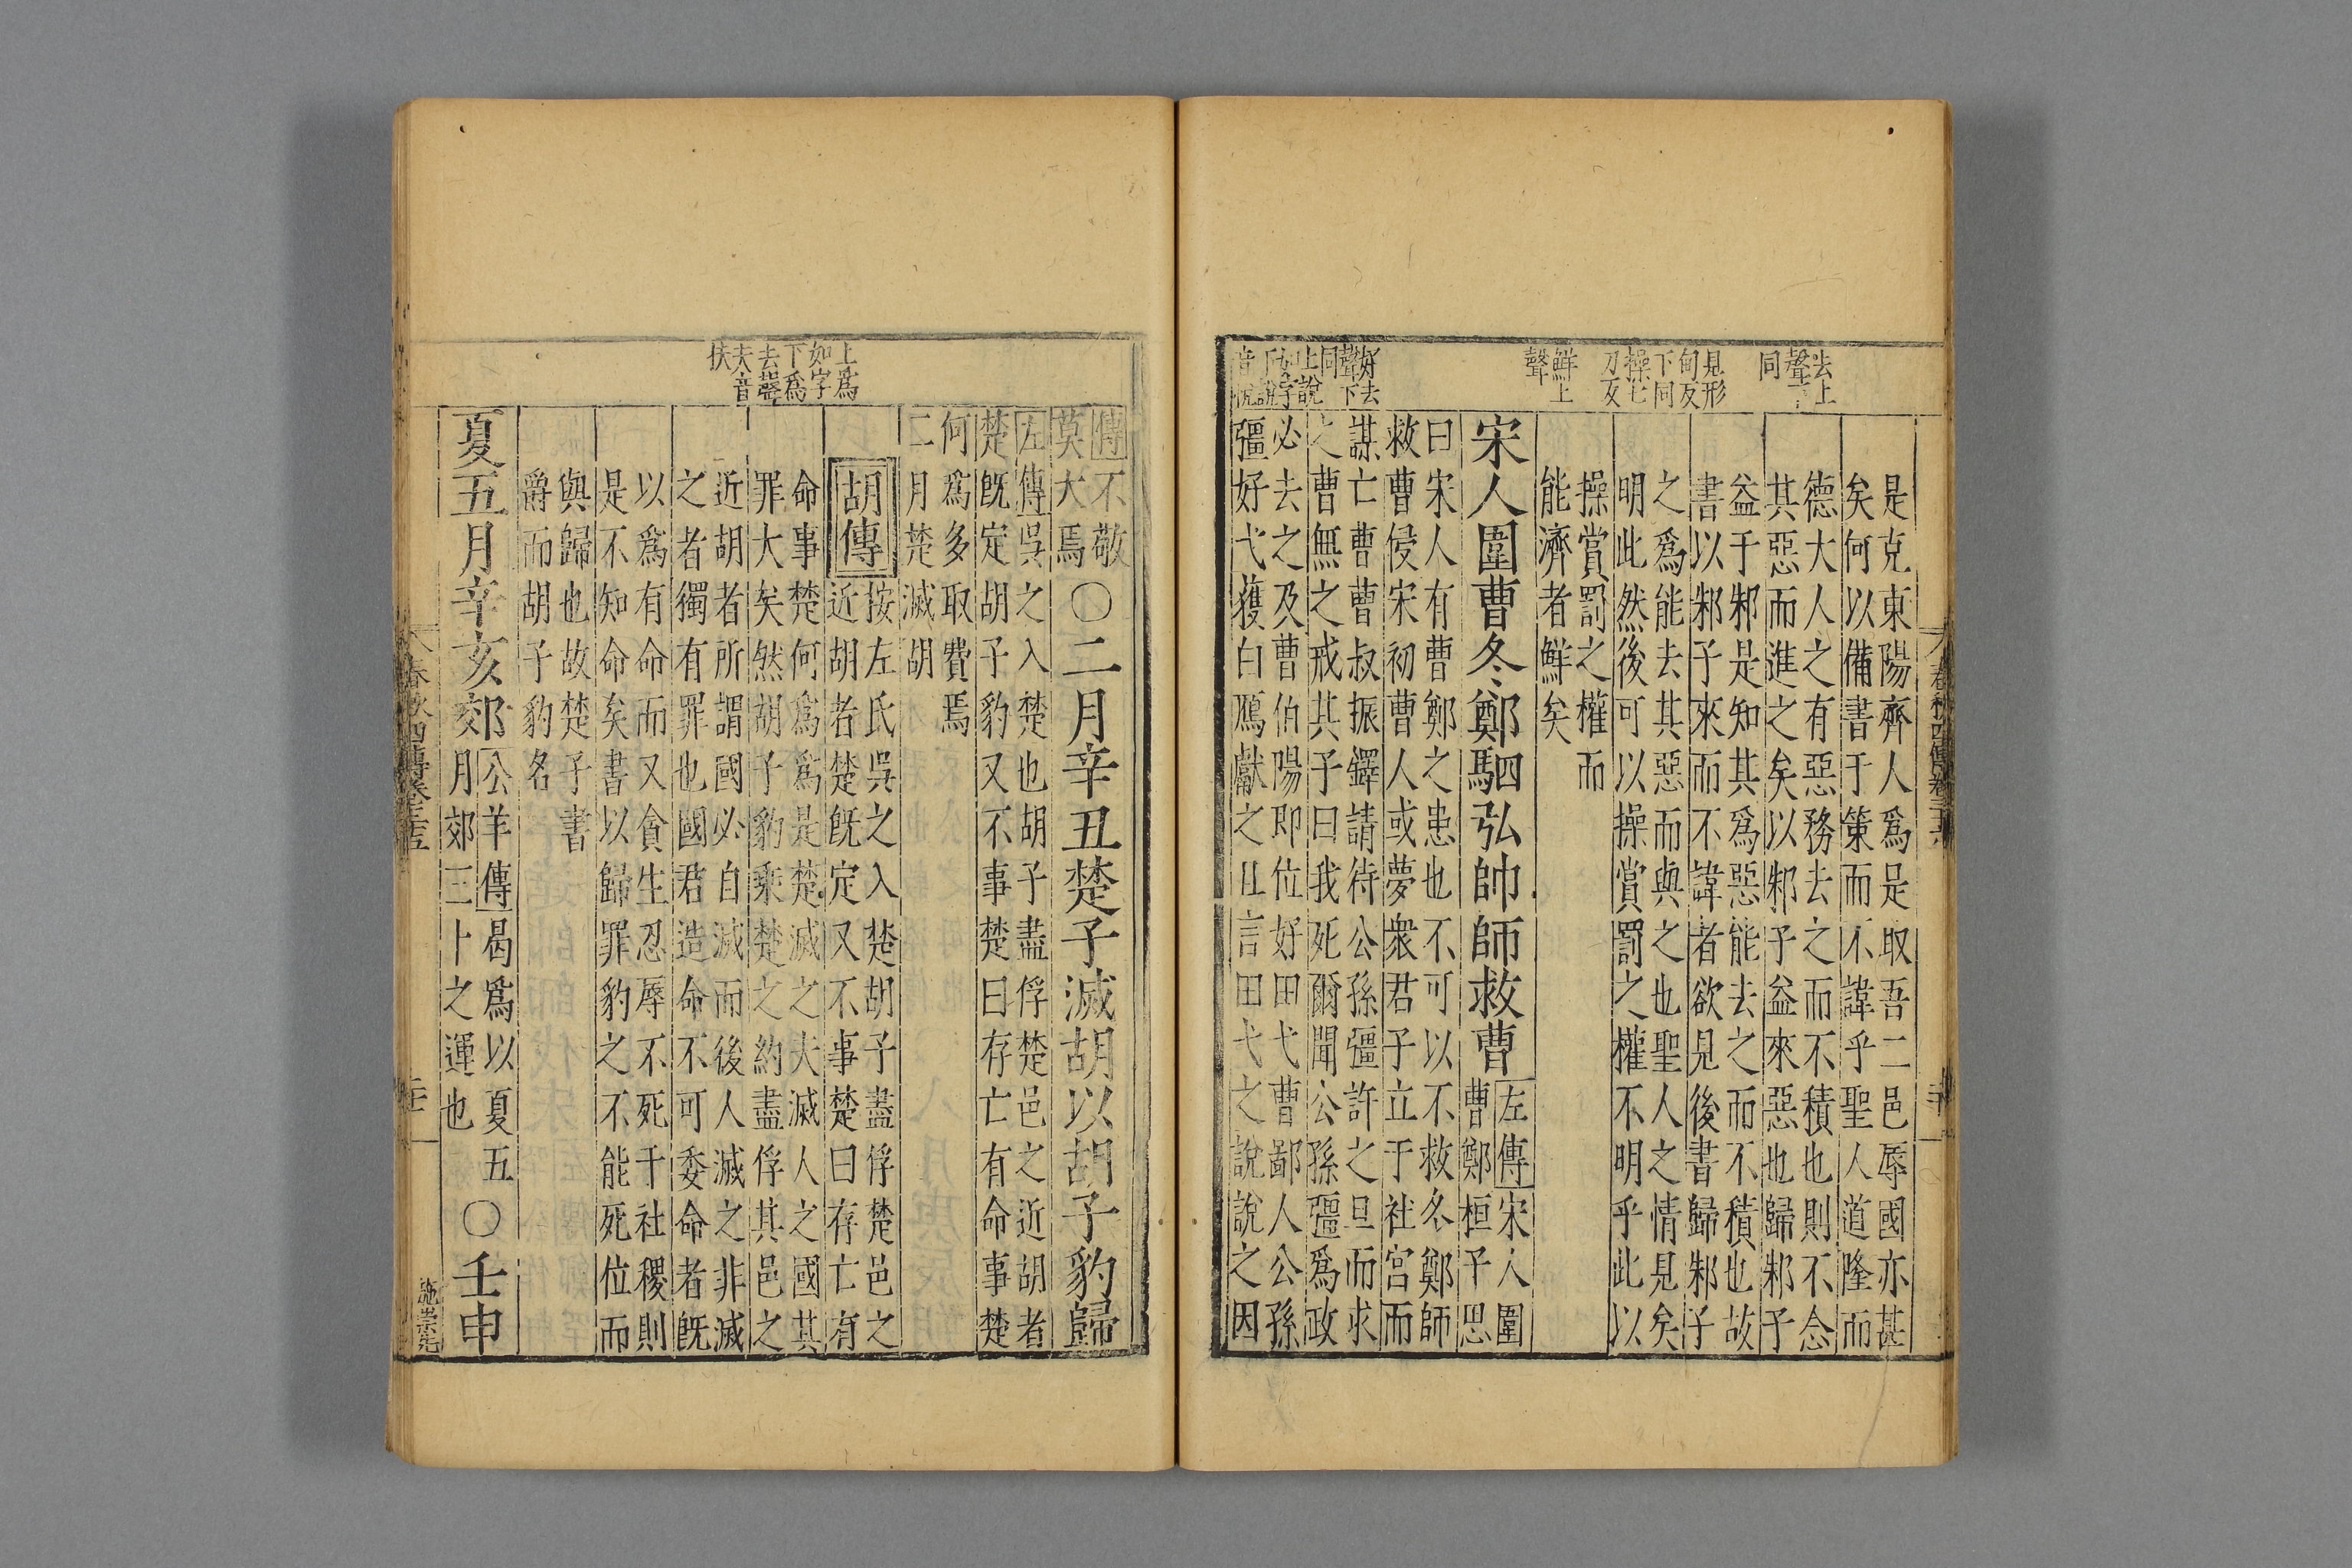 去上
聲去
同
見形
甸反
下同
操七
刀反
鮮上
聲
好去
聲下
同
上說
如字
下說
音悅
是克東陽齊人爲是取吾二邑辱國亦甚
矣何以備書于策而不諱乎聖人道隆而
德大人之有惡務去之而不積也則不念
其惡而進之矣以邾子益來惡也歸邾子
益于邾是知其爲惡能去之而不積也故
書以邾子來而不諱者欲見後書歸邾子
之爲能去其惡而與之也聖人之情見矣
明此然後可以操賞罰之權不明乎此以
操賞罰之權而
能濟者鮮矣
宋人圍曹冬鄭駟弘帥師救曹
左傳宋人圍
曹鄭桓子思
曰宋人有曹鄭之患也不可以不救冬鄭師
救曹侵宋初曹人或夢衆君子立于社宮而
謀亡曹曹叔振鐸請待公孫彊許之旦而求
之曹無之戒其子曰我死爾聞公孫彊爲政
必去之及曹伯陽即位好田弋曹鄙人公孫
彊好弋獲白鴈獻之且言田弋之說說之因
上爲
如字
下爲
去聲
夫音
扶
傳不敬
莫大焉
〇二月辛丑楚子滅胡以胡子豹歸
左傳吳之入楚也胡子盡俘楚邑之近胡者
楚旣定胡子豹又不事楚曰存亡有命事楚
何爲多取費焉
二月楚滅胡
胡傳
按左氏吳之入楚胡子盡俘楚邑之
近胡者楚旣定又不事楚曰存亡有
命事楚何爲爲是楚滅之夫滅人之國其
罪大矣然胡子豹乘楚之約盡俘其邑之
近胡者所謂國必自滅而後人滅之非滅
之者獨有罪也國君造命不可委命者旣
以爲有命而又貪生忍辱不死于社稷則
是不知命矣書以歸罪豹之不能死位而
與歸也故楚子書
爵而胡子豹名
夏五月辛亥郊
公羊傳曷爲以夏五
月郊三卜之運也
〇壬申